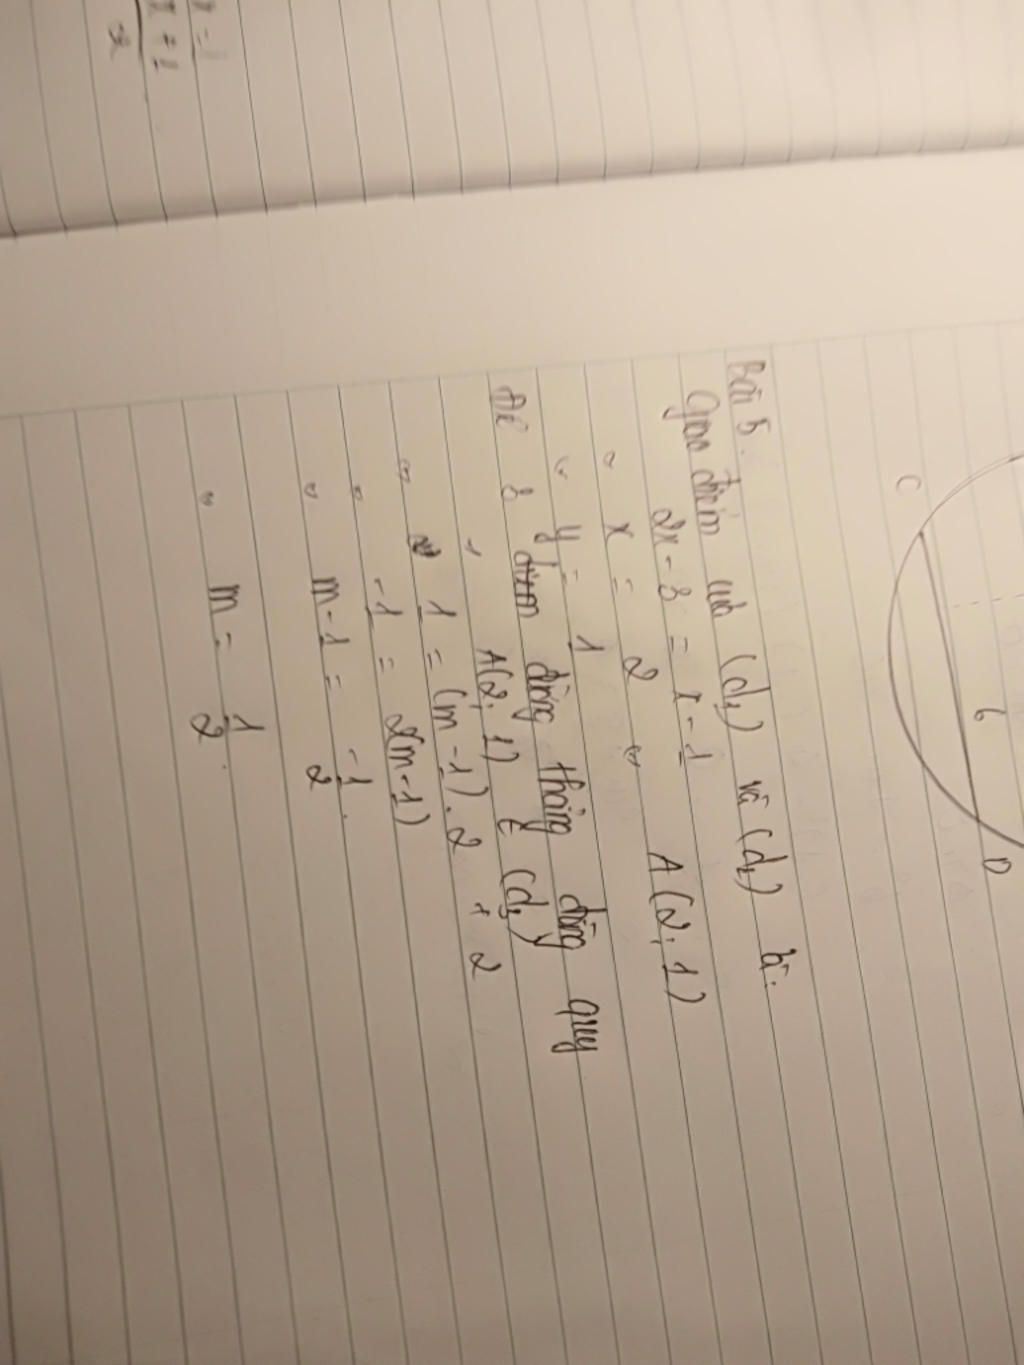 x - 1
x + 1
2
C
6
D
Bài 5.
Giao điểm của (d₁) và (d₂) là:
2x - 3 = x - 1
x = 2 ⇔ A(2; 1)
y = 1
Để 3 điểm đường thẳng đồng quy
A(2; 1) ∈ (d₃)
⇔ 1 = (m - 1). 2 + 2
-1 = 2(m - 1)
m - 1 = -1/2.
m = 1/2.